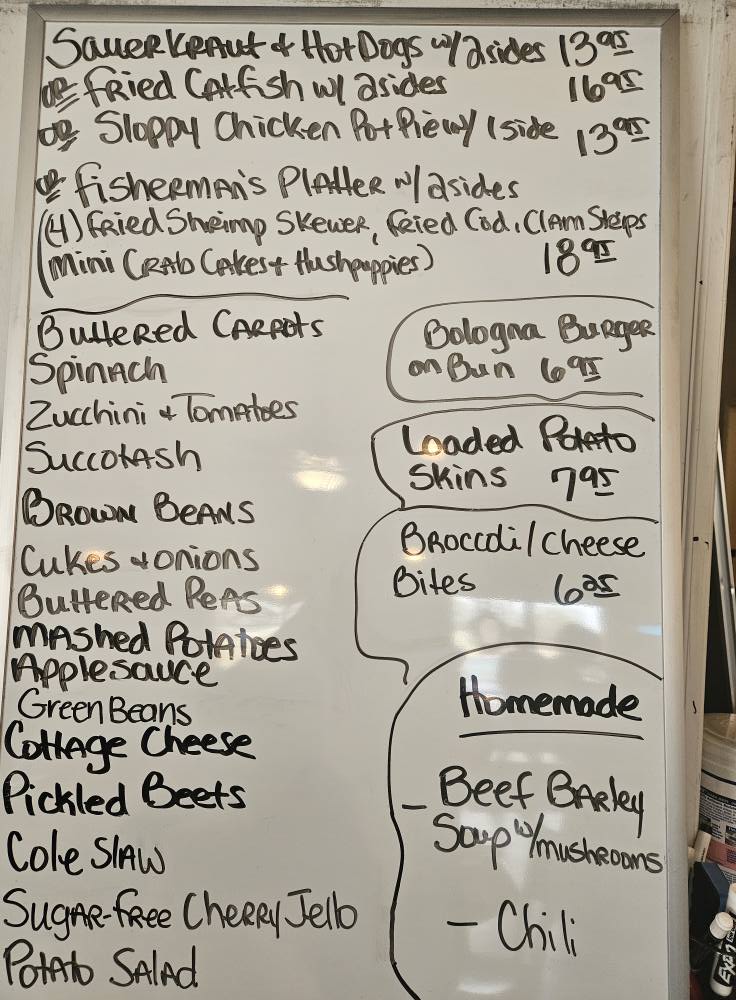 Sauerkraut & Hot Dogs w/ 2 sides 13.95
or Fried Catfish w/ 2 sides 16.95
or Sloppy Chicken Pot Pie w/ 1 side 13.95
or Fisherman's Platter w/ 2 sides
(4) Fried Shrimp Skewer, Fried Cod, Clam Strips
(Mini Crab Cakes + Hushpuppies) 18.95
Buttered Carrots
Spinach
Zucchini & Tomatoes
Succotash
Brown Beans
Cukes & Onions
Buttered Peas
Mashed Potatoes
Applesauce
Green Beans
Cottage Cheese
Pickled Beets
Cole Slaw
Sugar-Free Cherry Jello
Potato Salad
Bologna Burger
on Bun 6.95
Loaded Potato
Skins 7.95
Broccoli/Cheese
Bites 6.25
Homemade
- Beef Barley
Soup w/ mushrooms
- Chili
EXPO